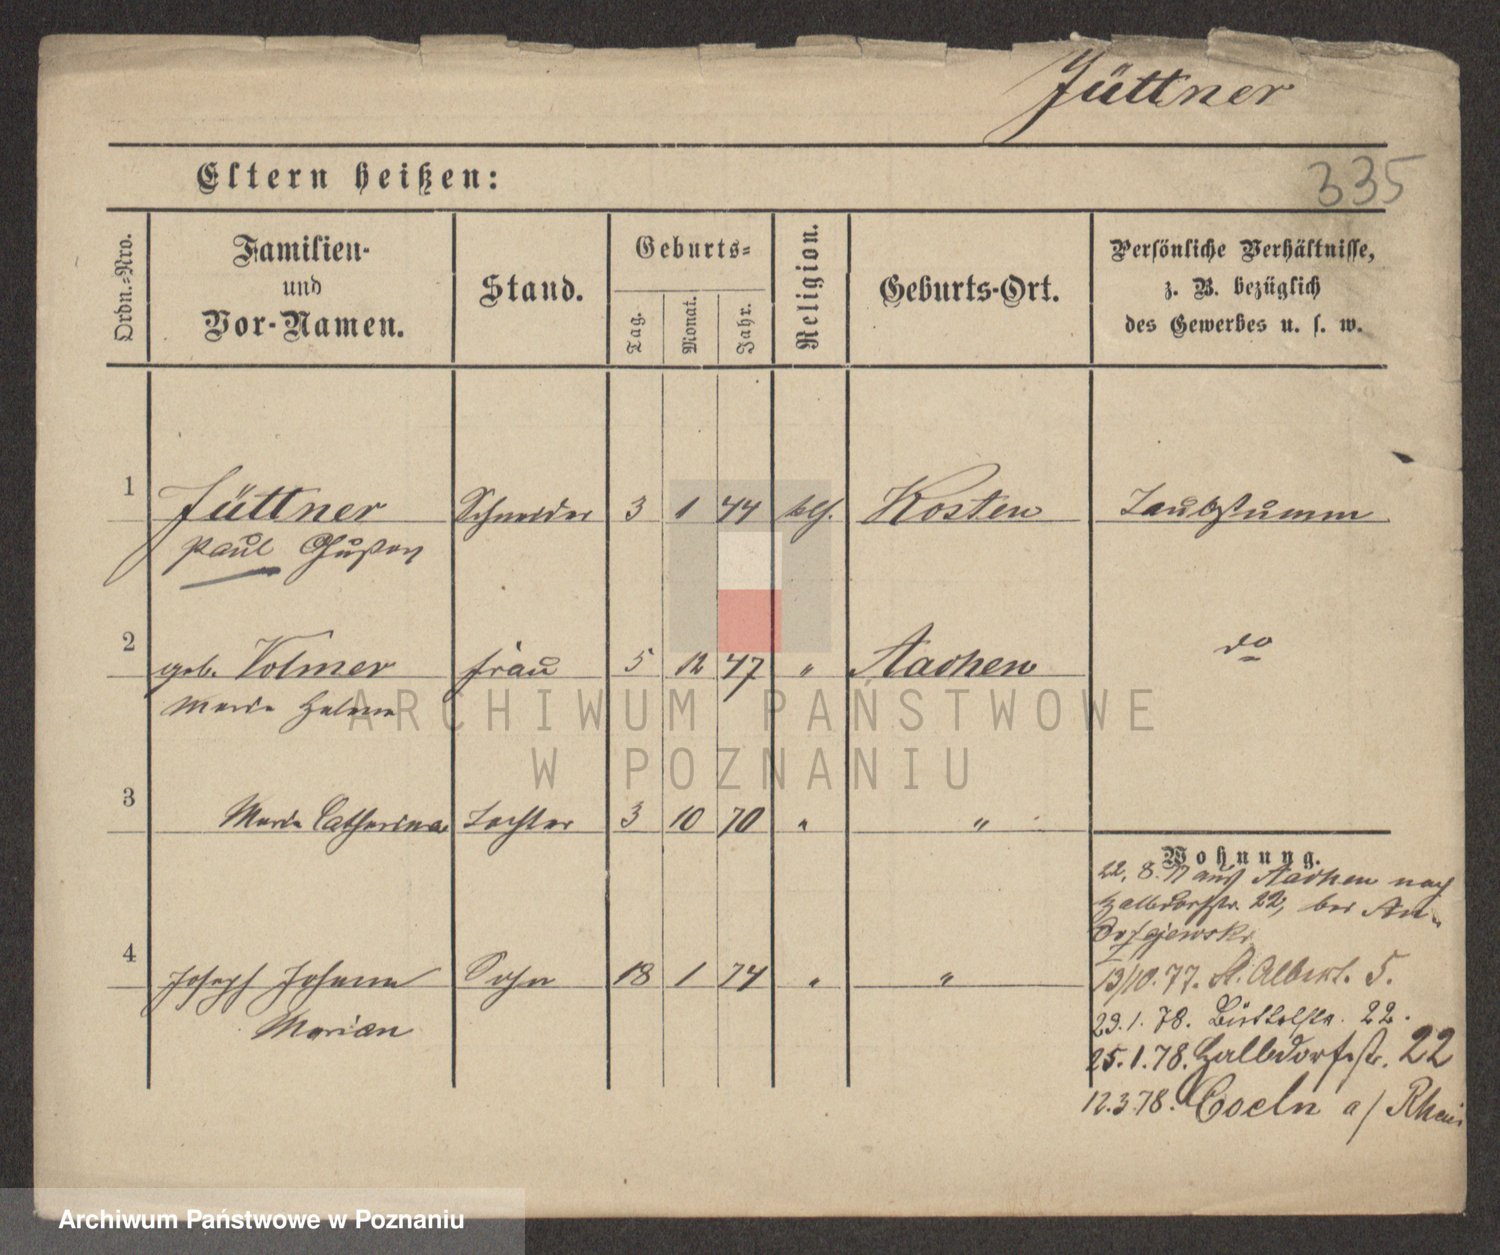 Jüttner
Eltern heißen:
335
Ordn.-Nro.
Familien-
und
Vor-Namen.
Stand.
Geburts-
Tag.
Monat.
Jahr.
Religion.
Geburts-Ort.
Persönliche Verhältnisse,
z. B. bezüglich
des Gewerbes u. s. w.
1 Jüttner Schneider 3 1 44 kth. Kosten Taubstumm
Paul Gustav
2 geb. Volmer Frau 5 12 47 " Aachen do
Maria Helena
3 Maria Catharina Tochter 3 10 70 " "
Wohnung.
22. 8. 77 aus Aachen nach
Halbdorfstr. 22, bei An-
drzejewski
4 Joseph Johann Sohn 18 1 74 " "
Marian
13/10. 77. St. Albert. 5.
29. 1. 78. Büttelstr. 22.
25. 1. 78. Halbdorfstr. 22
12. 3. 78. Coeln a/ Rhein
ARCHIWUM PAŃSTWOWE
W POZNANIU
Archiwum Państwowe w Poznaniu